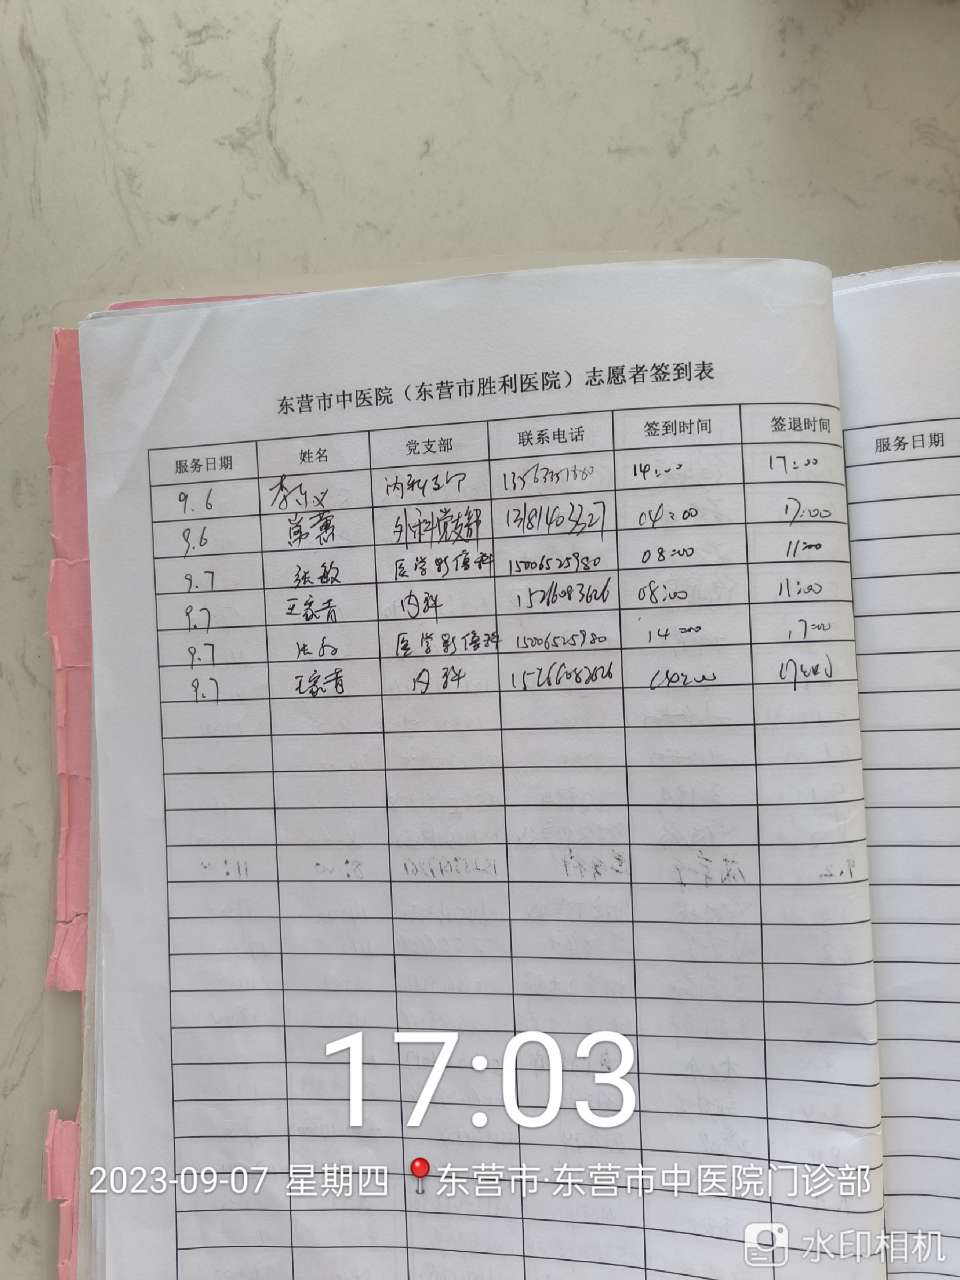 东营市中医院（东营市胜利医院）志愿者签到表
服务日期 姓名 党支部 联系电话 签到时间 签退时间 服务日期
9.6 14:00 17:00
9.6 外科党支部 13181403327 04:00 17:00
9.7 张敏 医学影像科 15006525980 08:00 11:00
9.7 王家青 内科 15266083626 08:00 11:00
9.7 医学影像科 15006525980 14:00 17:00
9.7 王家青 内科 17:00
17:03
2023-09-07 星期四 东营市·东营市中医院门诊部
水印相机